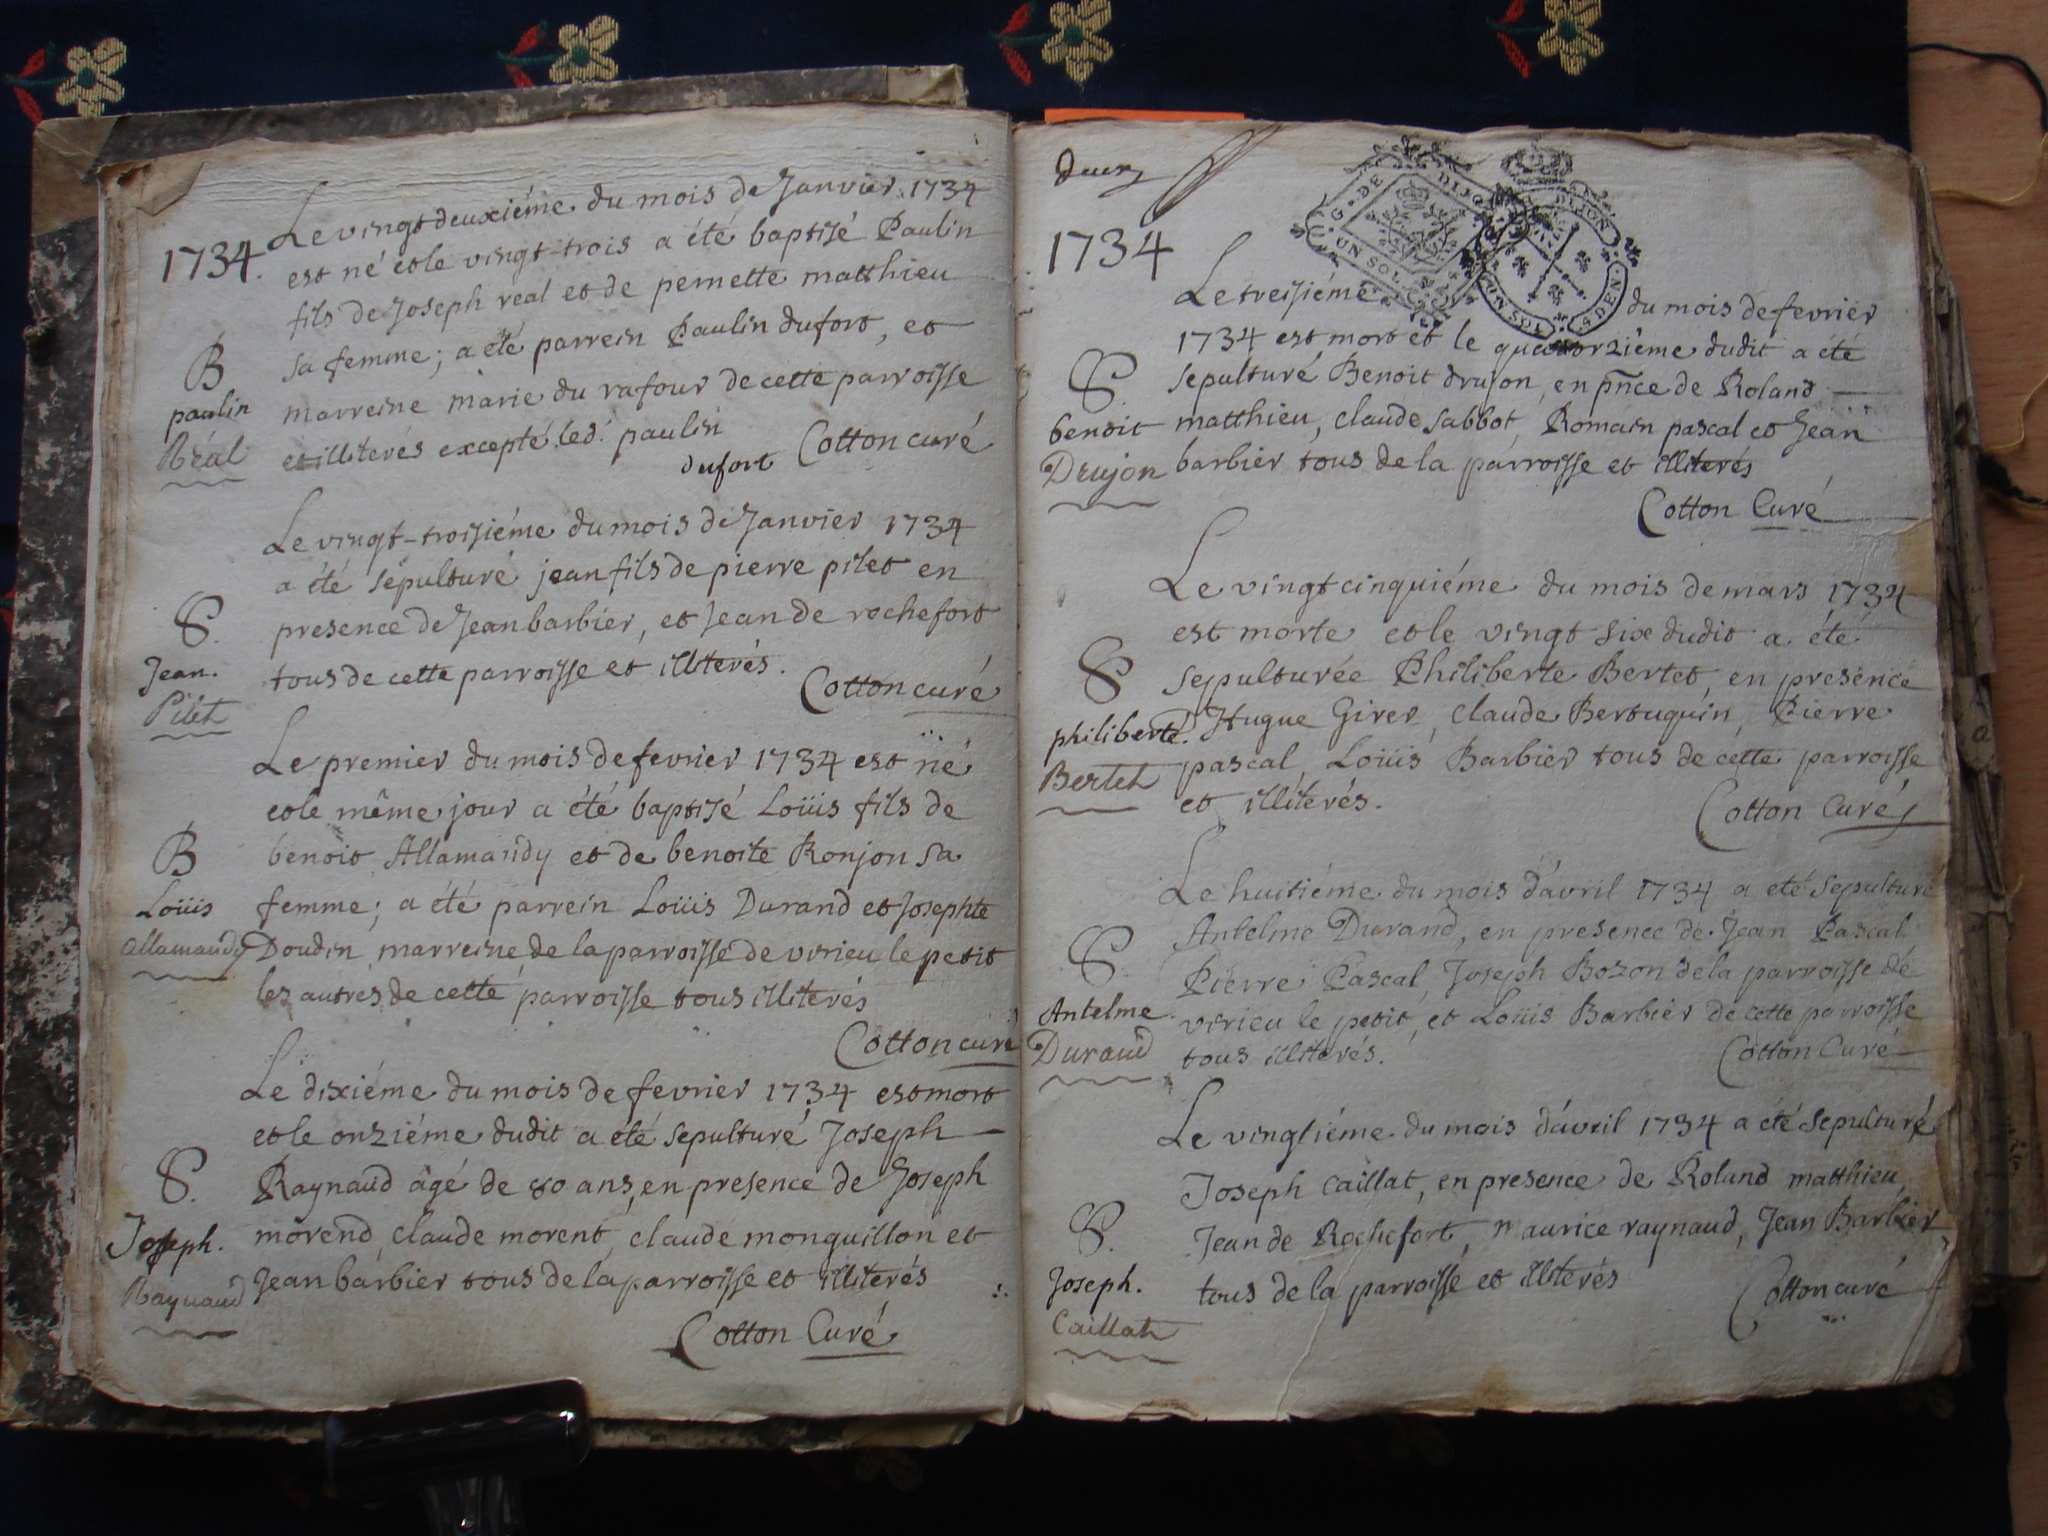 1734.
Le vingt deuxiéme du mois de Janvier 1734
est né et le vingt-trois a été baptisé Paulin
fils de Joseph real et de pernette matthieu
sa femme; a été parrein Paulin dufort, et
marreine marie du rafour de cette parroisse
et illiterés excepté led. paulin
dufort Cotton curé
B
paulin
Réal
Le vingt-troisiéme du mois de Janvier 1734
a été sépulturé jean fils de pierre pilet en
presence de Jean barbier, et Jean de rochefort
tous de cette parroisse et illiterés.
Cotton curé
S.
Jean.
Pilet
Le premier du mois de fevrier 1734 est né
et le même jour a été baptisé Loüis fils de
benoit Allamandy et de benoite Ronjon sa
femme; a été parrein Loüis Durand et Josephte
Doudin marreine de la parroisse de virieu le petit
les autres de cette parroisse tous illiterés
Cotton curé
B
Loüis
allamandy
Le dixiéme du mois de fevrier 1734 est mort
et le onziéme dudit a été sepulturé Joseph
Raynaud âgé de 80 ans, en presence de Joseph
morend, claude morent, claude monguillon et
Jean barbier tous de la parroisse et illiterés
Cotton Curé
S.
Joseph.
Raynaud
1734
G. DE DIJON
UN SOL
DIJON
UN SOL 4 DEN.
Le treisiéme du mois de fevrier
1734 est mort et le quatorziéme dudit a été
sepulturé Benoit drujon, en pñce de Roland
matthieu, claude sabbot, Romain pascal et Jean
barbier tous de la parroisse et illiterés
Cotton Curé
S.
benoit
Drujon
Le vingt cinquiéme du mois de mars 1734
est morte et le vingt six dudit a été
sepulturée Philiberte Bertet, en presence
Hugue Girer, claude Bertuquin, Pierre
pascal, Loüis Barbier tous de cette parroisse
et illiterés.
Cotton Curé
S
philiberte.
Bertet
Le huitiéme du mois d'avril 1734 a été sepulturé
Antelme Durand, en presence de Jean Pascal
Pierre Pascal, Joseph Bozon de la parroisse de
virieu le petit, et Loüis Barbier de cette parroisse
tous illiterés.
Cotton Curé
S.
Antelme
Durand
Le vingtiéme du mois d'avril 1734 a été sepulturé
Joseph caillat, en presence de Roland matthieu,
Jean de Rochefort, maurice raynaud, Jean Barbier
tous de la parroisse et illiterés
Cotton curé
S.
Joseph.
Caillat